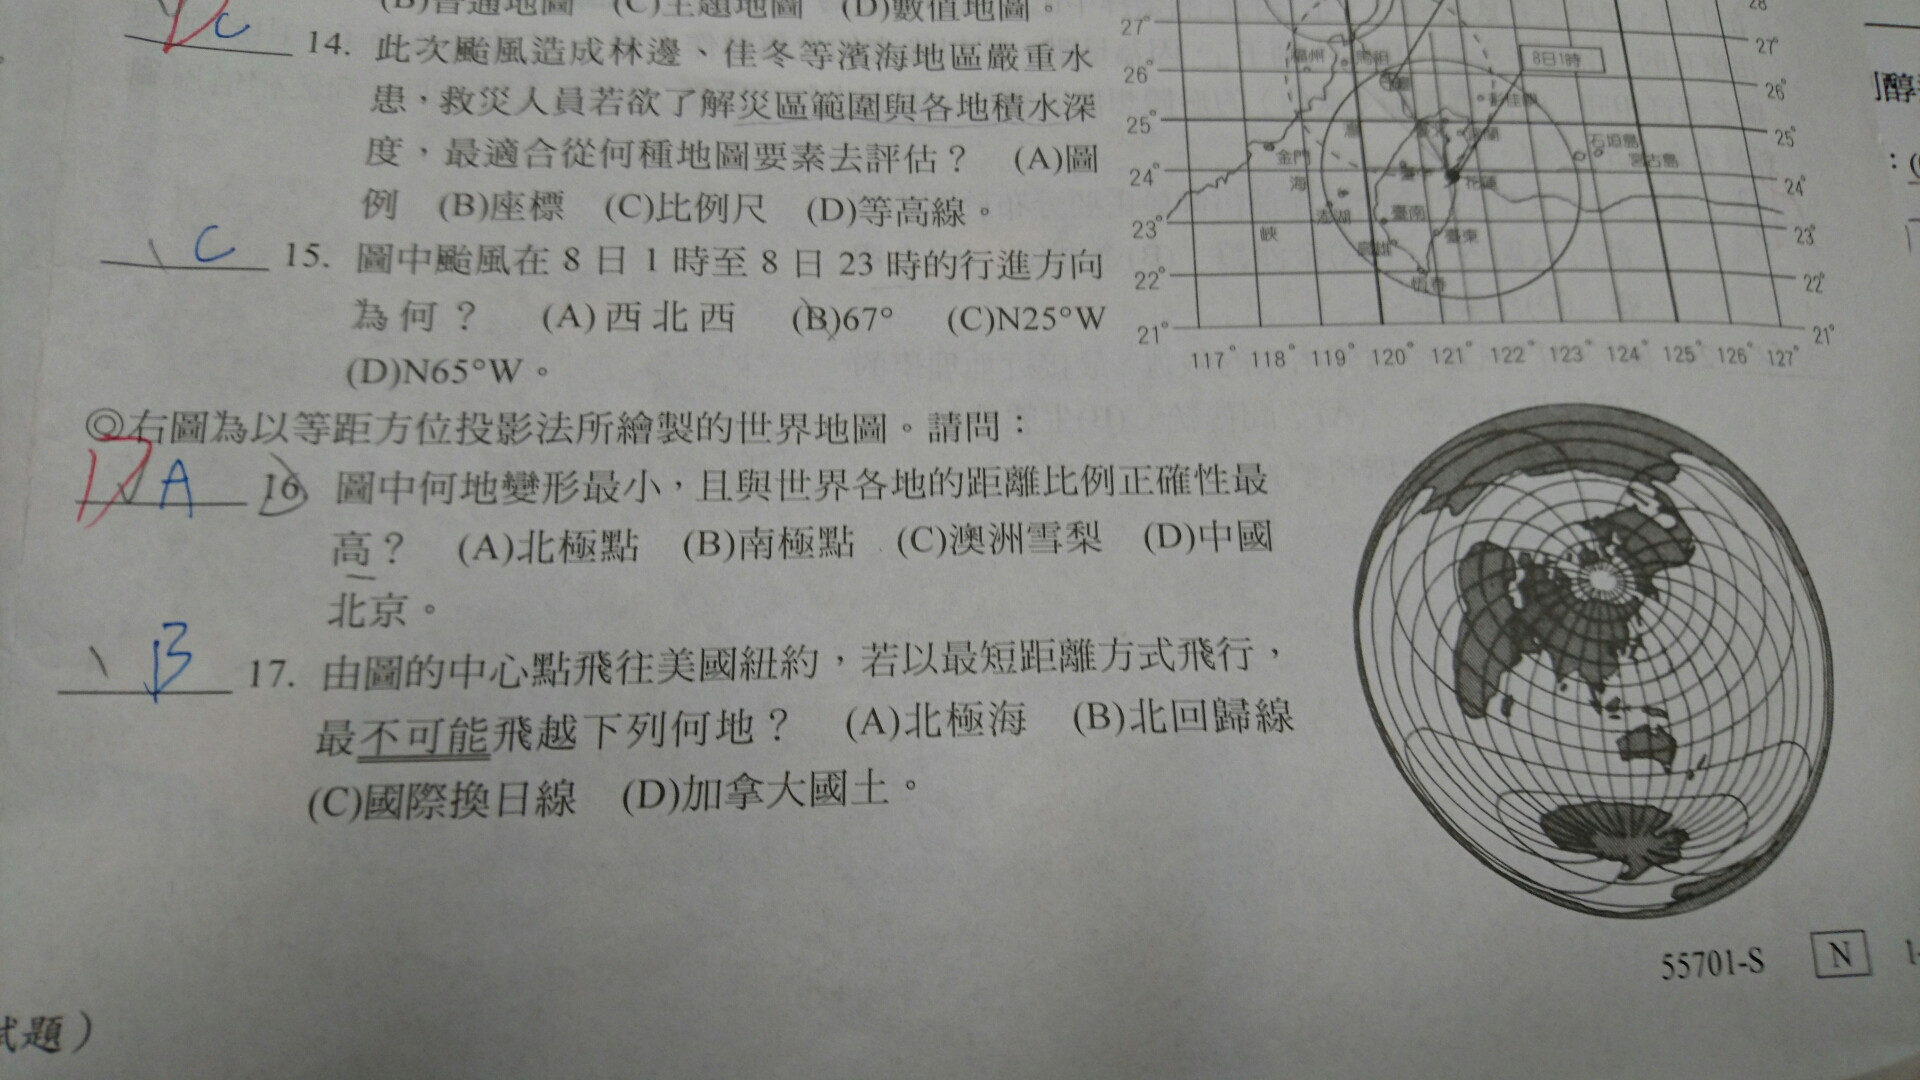 (B)普通地圖 (C)主題地圖 (D)數值地圖。
D C 14. 此次颱風造成林邊、佳冬等濱海地區嚴重水
患，救災人員若欲了解災區範圍與各地積水深
度，最適合從何種地圖要素去評估？ (A)圖
例 (B)座標 (C)比例尺 (D)等高線。
C 15. 圖中颱風在 8 日 1 時至 8 日 23 時的行進方向
為何？ (A)西北西 (B)67° (C)N25°W
(D)N65°W。
◎右圖為以等距方位投影法所繪製的世界地圖。請問：
D A 16. 圖中何地變形最小，且與世界各地的距離比例正確性最
高？ (A)北極點 (B)南極點 (C)澳洲雪梨 (D)中國
北京。
B 17. 由圖的中心點飛往美國紐約，若以最短距離方式飛行，
最不可能飛越下列何地？ (A)北極海 (B)北回歸線
(C)國際換日線 (D)加拿大國土。
28
27° 27°
福州 馬祖 8日1時
26° 26°
彭佳嶼
25° 25°
石垣島
金門 宮古島
24° 花蓮 24°
海
澎湖 臺南
23° 峽 高雄 臺東 23°
22° 恆春 22°
21° 21°
117° 118° 119° 120° 121° 122° 123° 124° 125° 126° 127°
55701-S N
試題）